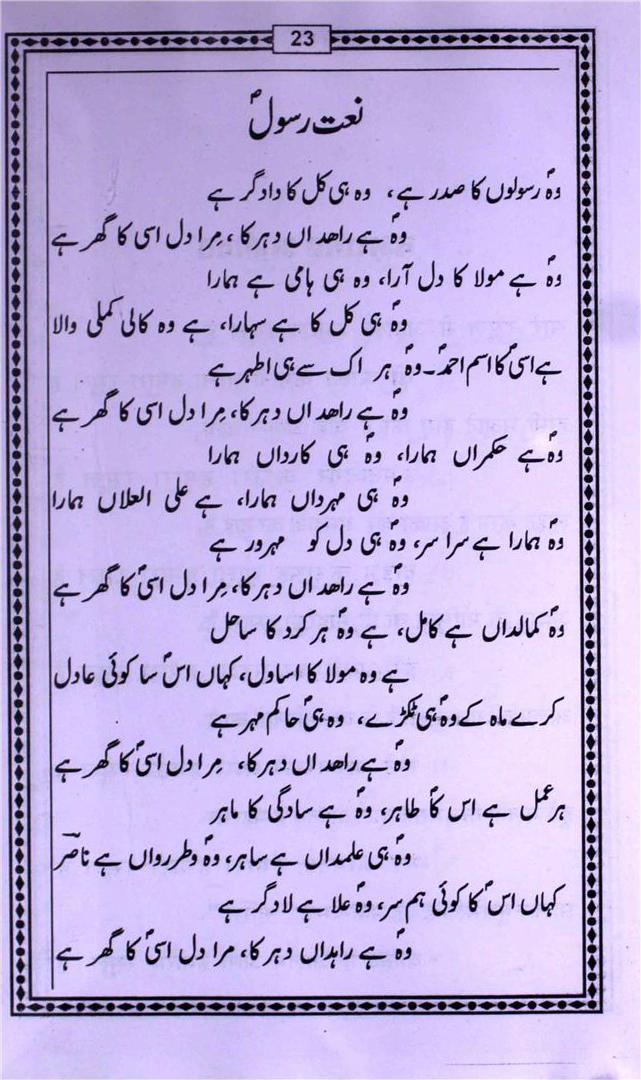 23
نعت رسولؐ
وہؐ رسولوں کا صدر ہے، وہ ہی کل کا دادگر ہے
وہؐ ہے راھداں دہر کا، مِرا دل اسی کا گھر ہے
وہؐ ہے مولا کا دل آرا، وہ ہی ہامی ہے ہمارا
وہؐ ہی کل کا ہے سہارا، ہے وہ کالی کملی والا
ہے اسیؐ کا اسم احمدؐ۔ وہؐ ہر اک سے ہی اطہر ہے
وہؐ ہے راھداں دہر کا، مِرا دل اسی کا گھر ہے
وہؐ ہے حکمراں ہمارا، وہؐ ہی کارداں ہمارا
وہؐ ہی مہرداں ہمارا، ہے علی العلاں ہمارا
وہؐ ہمارا ہے سرا سر، وہؐ ہی دل کو مہرور ہے
وہؐ ہے راھداں دہر کا، مِرا دل اسیؐ کا گھر ہے
وہؐ کمالداں ہے کامل، ہے وہؐ ہر کرد کا ساحل
ہے وہ مولا کا اساول، کہاں اسؐ سا کوئی عادل
کرے ماہ کے وہؐ ہی ٹکڑے، وہ ہیؐ حاکم مہر ہے
وہؐ ہے راھداں دہر کا، مِرا دل اسیؐ کا گھر ہے
ہر عمل ہے اس کاؐ طاہر، وہؐ ہے سادگی کا ماہر
وہؐ ہی علمداں ہے ساہر، وہؐ وطررواں ہے ناصر
کہاں اسؐ کا کوئی ہم سر، وہؐ علا ہے لادگر ہے
وہؐ ہے راہداں دہر کا، مرا دل اسیؐ کا گھر ہے